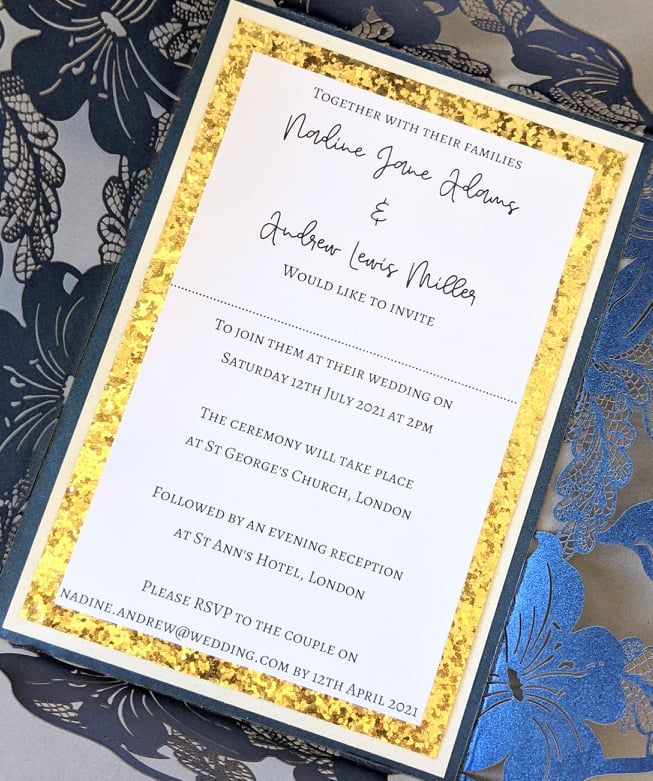 Together with their families
Nadine Jane Adams
&
Andrew Lewis Miller
Would like to invite
To join them at their wedding on
Saturday 12th July 2021 at 2pm
The ceremony will take place
at St George's Church, London
Followed by an evening reception
at St Ann's Hotel, London
Please RSVP to the couple on
nadine.andrew@wedding.com by 12th April 2021